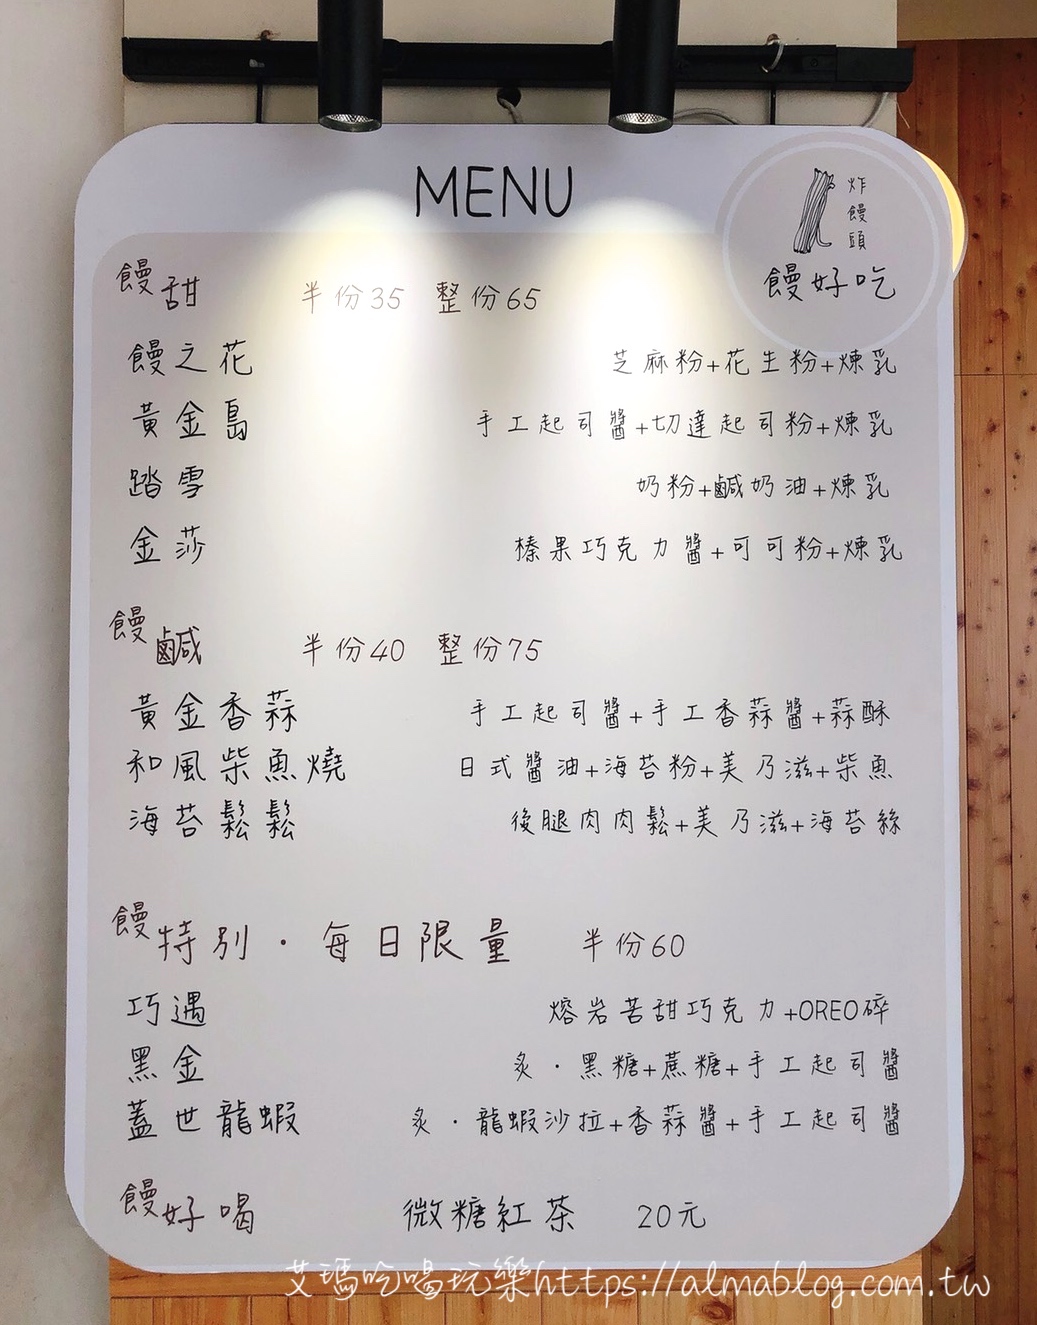 MENU
炸饅頭
饅好吃
饅甜 半份35 整份65
饅之花 芝麻粉+花生粉+煉乳
黃金島 手工起司醬+切達起司粉+煉乳
踏雪 奶粉+鹹奶油+煉乳
金莎 榛果巧克力醬+可可粉+煉乳
饅鹹 半份40 整份75
黃金香蒜 手工起司醬+手工香蒜醬+蒜酥
和風柴魚燒 日式醬油+海苔粉+美乃滋+柴魚
海苔鬆鬆 後腿肉肉鬆+美乃滋+海苔絲
饅特別·每日限量 半份60
巧遇 熔岩苦甜巧克力+OREO碎
黑金 炙·黑糖+蔗糖+手工起司醬
蓋世龍蝦 炙·龍蝦沙拉+香蒜醬+手工起司醬
饅好喝 微糖紅茶 20元
艾瑪吃喝玩樂https://almablog.com.tw